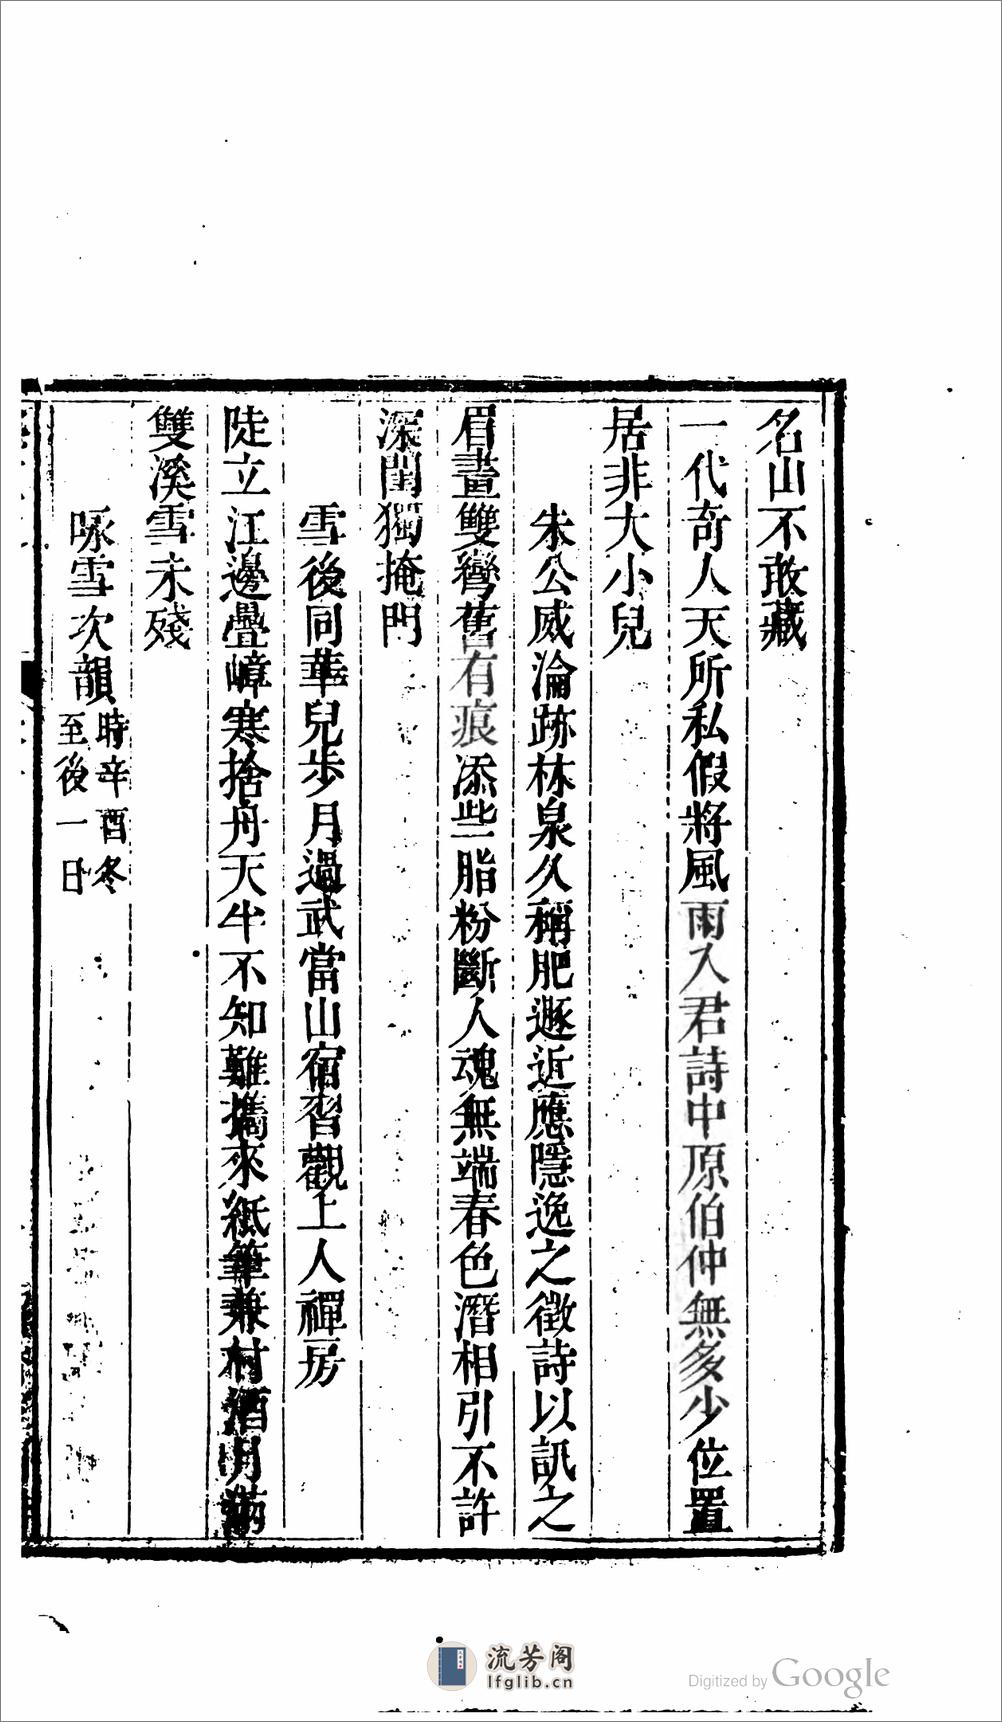 名山不敢藏
一代奇人天所私假將風雨入君詩中原伯仲無多少位置
居非大小兒
朱公威淪跡林泉久稱肥遯近應隱逸之徵詩以訊之
眉畫雙彎舊有痕添些脂粉斷人魂無端春色潛相引不許
深閨獨掩門
雪後同華兒步月過武當山宿習觀上人禪房
陡立江邊疊嶂寒捨舟天半不知難攜來紙筆兼村酒月滿
雙溪雪未殘
咏雪次韻時辛酉冬
至後一日
流芳阁
lfglib.cn
Digitized by Google